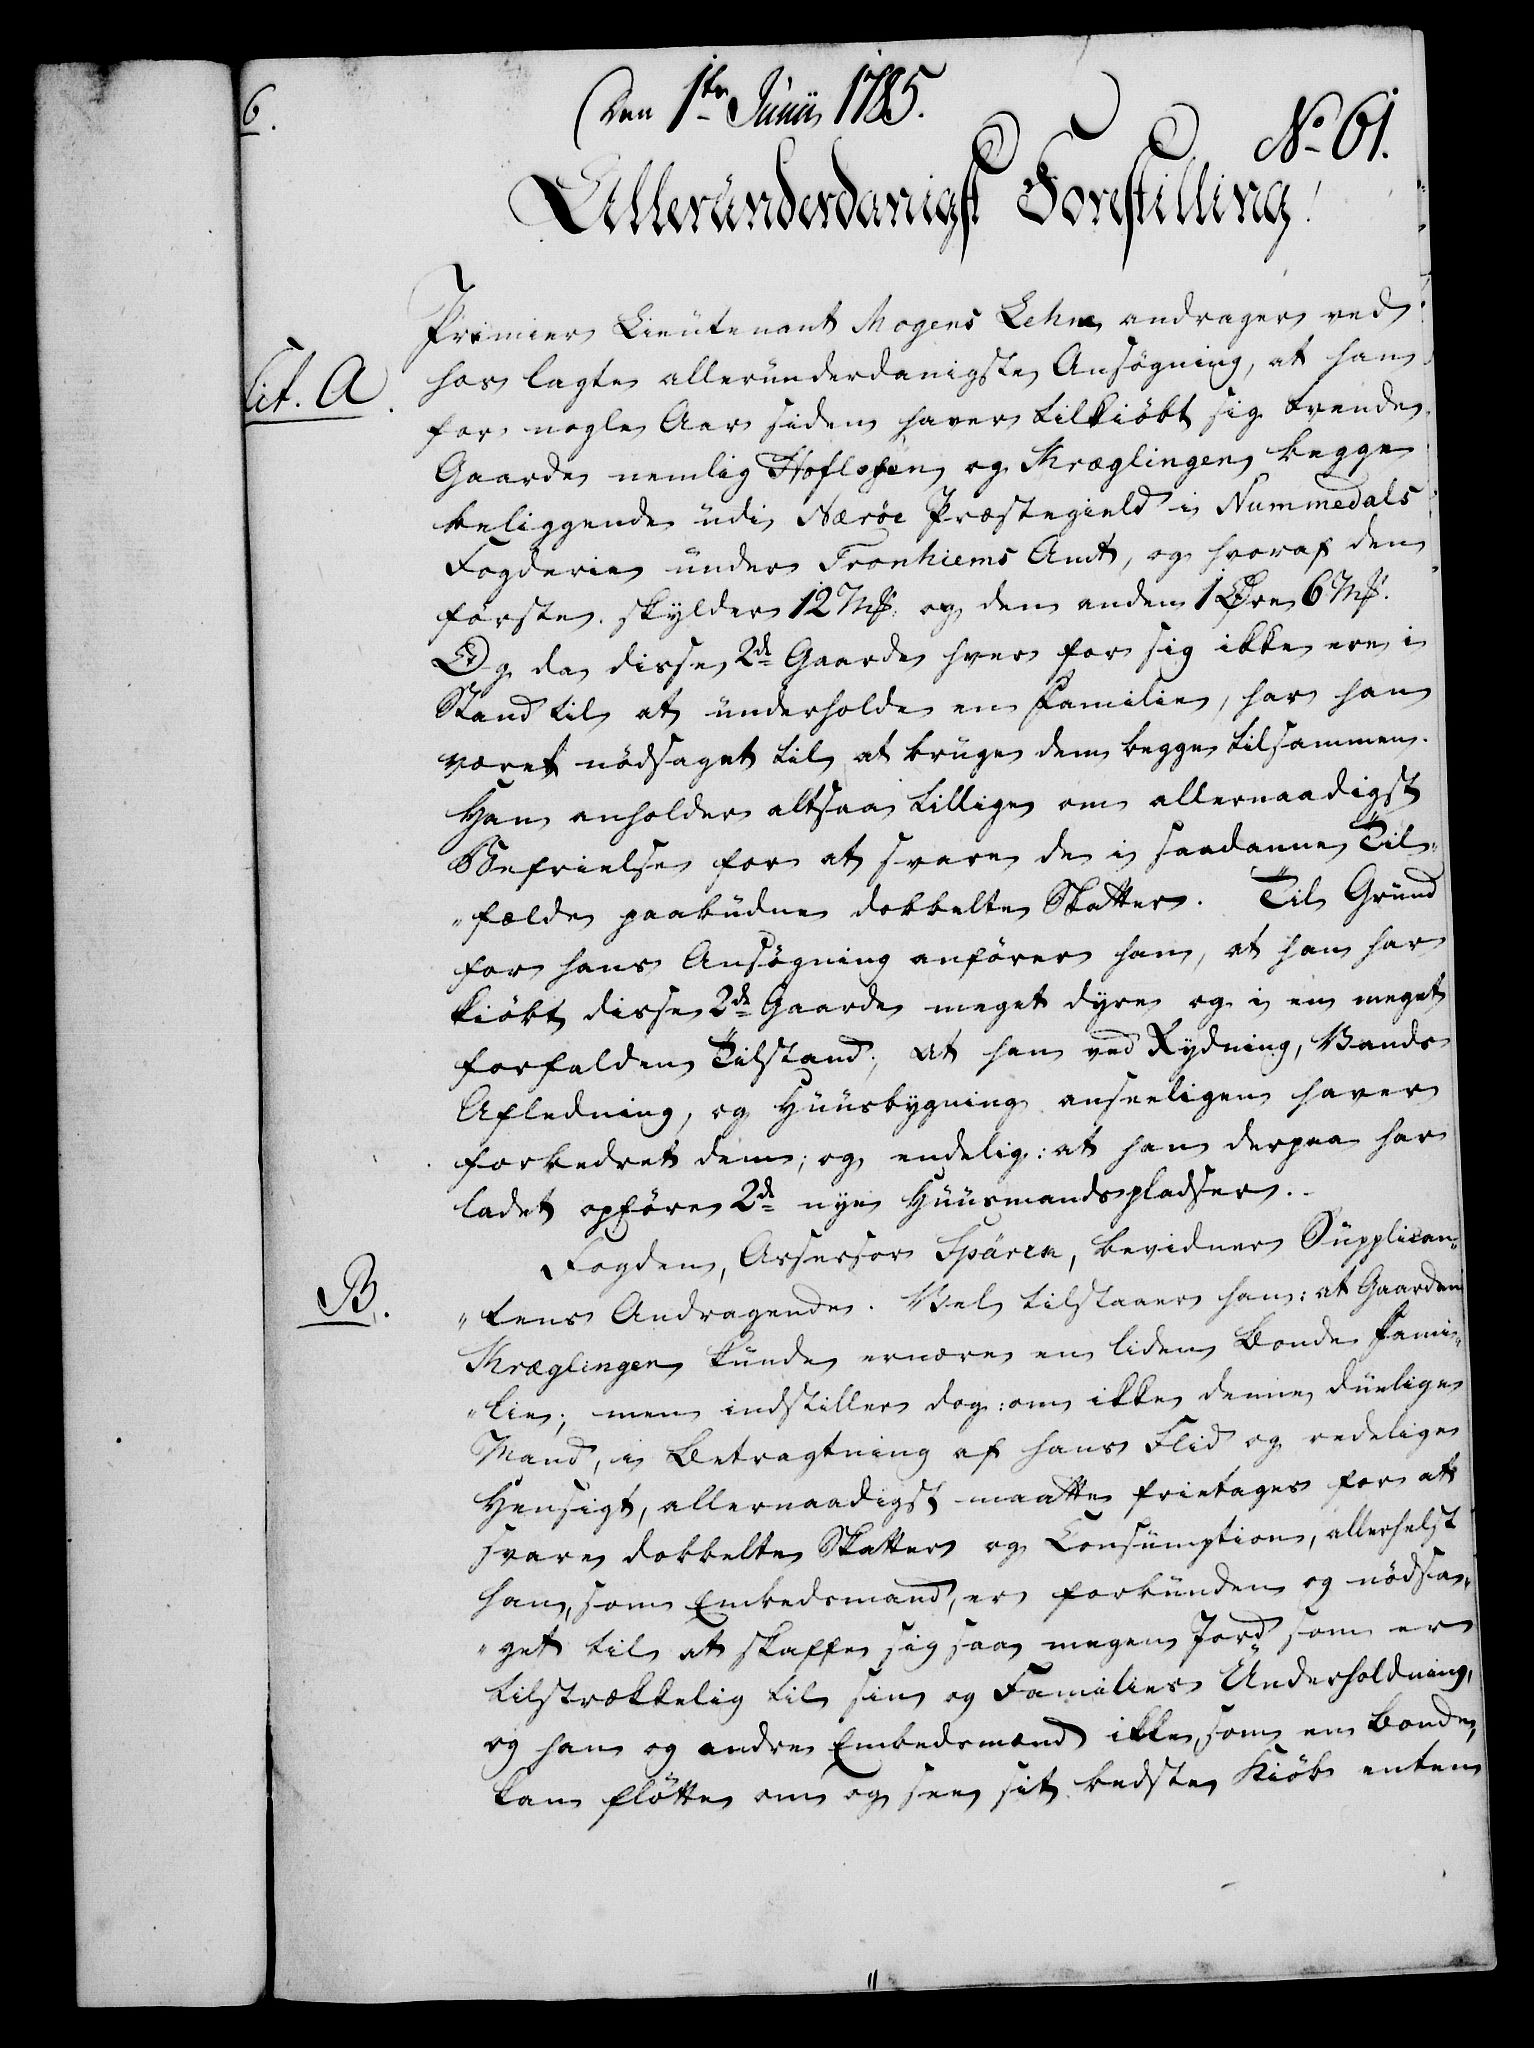 6.
Den 1te Junii 1785.
No 61.
Alleründerdanigst Forestilling!
Primier Lieutenant Mogens Lehn andrager ved
Lit. A.
hos lagte alleründerdanigste Ansøgning, at han
for nogle Aar siden haver tilkiøbt sig trende
Gaarde nemlig Hoflosen og Kræglingen begge
beliggende üdi Nærøe Præstegield i Nummedals
Fogderie ünder Tronhiems Amt, og hvoraf den
første skylder 12 Mk: og den anden 1 Øre 6 Mk.
Og da disse 2de Gaarde hver for sig ikke ere i
Stand til at ünderholde en Familie, har han
været nødsaget til at brüge dem begge tilsammen.
Han anholder altsaa tillige om allernaadigst
Befrielse for at svare de i saadanne Til„
„fælde paabüdne dobbelte Skatter. Til Gründ
for hans Ansøgning anfører han, at han har
kiøbt disse 2de Gaarde meget dyre og i en meget
forfalden Tilstand; at han ved Rydning, Vands
Afledning, og Hüüsbygning anseeligen haver
forbedret dem; og endelig: at han derpaa har
ladet opføre 2de nye Hüüsmandspladser.
B.
Fogden, Assessor Spären, bevidner Süpplican„
„tens Andragende. Vel tilstaaer han: at Gaarden
Kræglingen künde ernære en liden Bonde Fami„
„lie; men indstiller dog: om ikke denne düelige
Mand, i Betragtning af hans Flid og redelige
Hensigt, allernaadigst maatte frietages for at
svare dobbelte Skatter og Consümption, allerhelst
han, som Embedsmand, er forbünden og nødsa„
„get til at skaffe sig saa megen Jord som er
tilstrækkelig til sin og Families Ünderholdning,
og han og andre Embedsmænd ikke, som en Bonde,
kan fløtte om og see sit bedste Kiøb enten